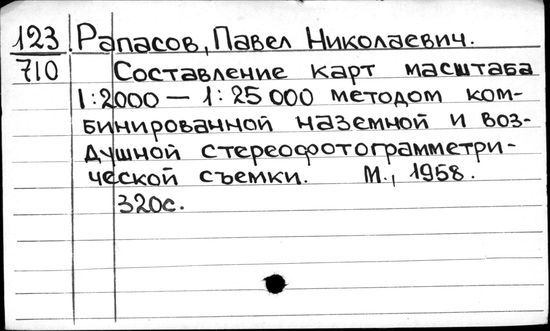 123 Рапасов, Павел Николаевич.
710 Составление карт масштаба
1:2000 — 1:25000 методом ком-
бинированной наземной и воз-
душной стереофотограмметри-
ческой съемки. М., 1958.
320с.